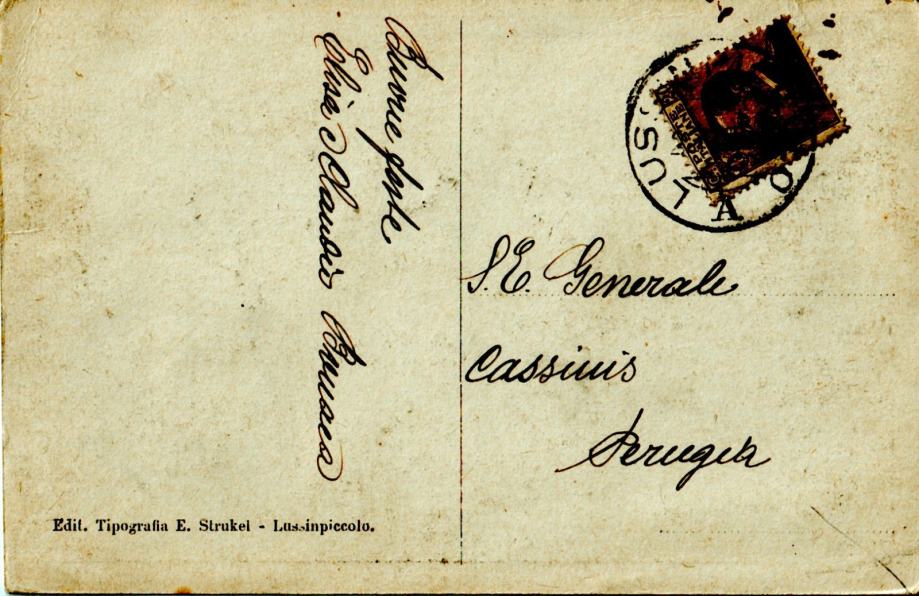 Buone feste
Elisa e Claudio
POSTE
ITALIANE
LUS
A
O
S.E. Generale
Cassinis
Perugia
Edit. Tipografia E. Strukel - Lussinpiccolo.